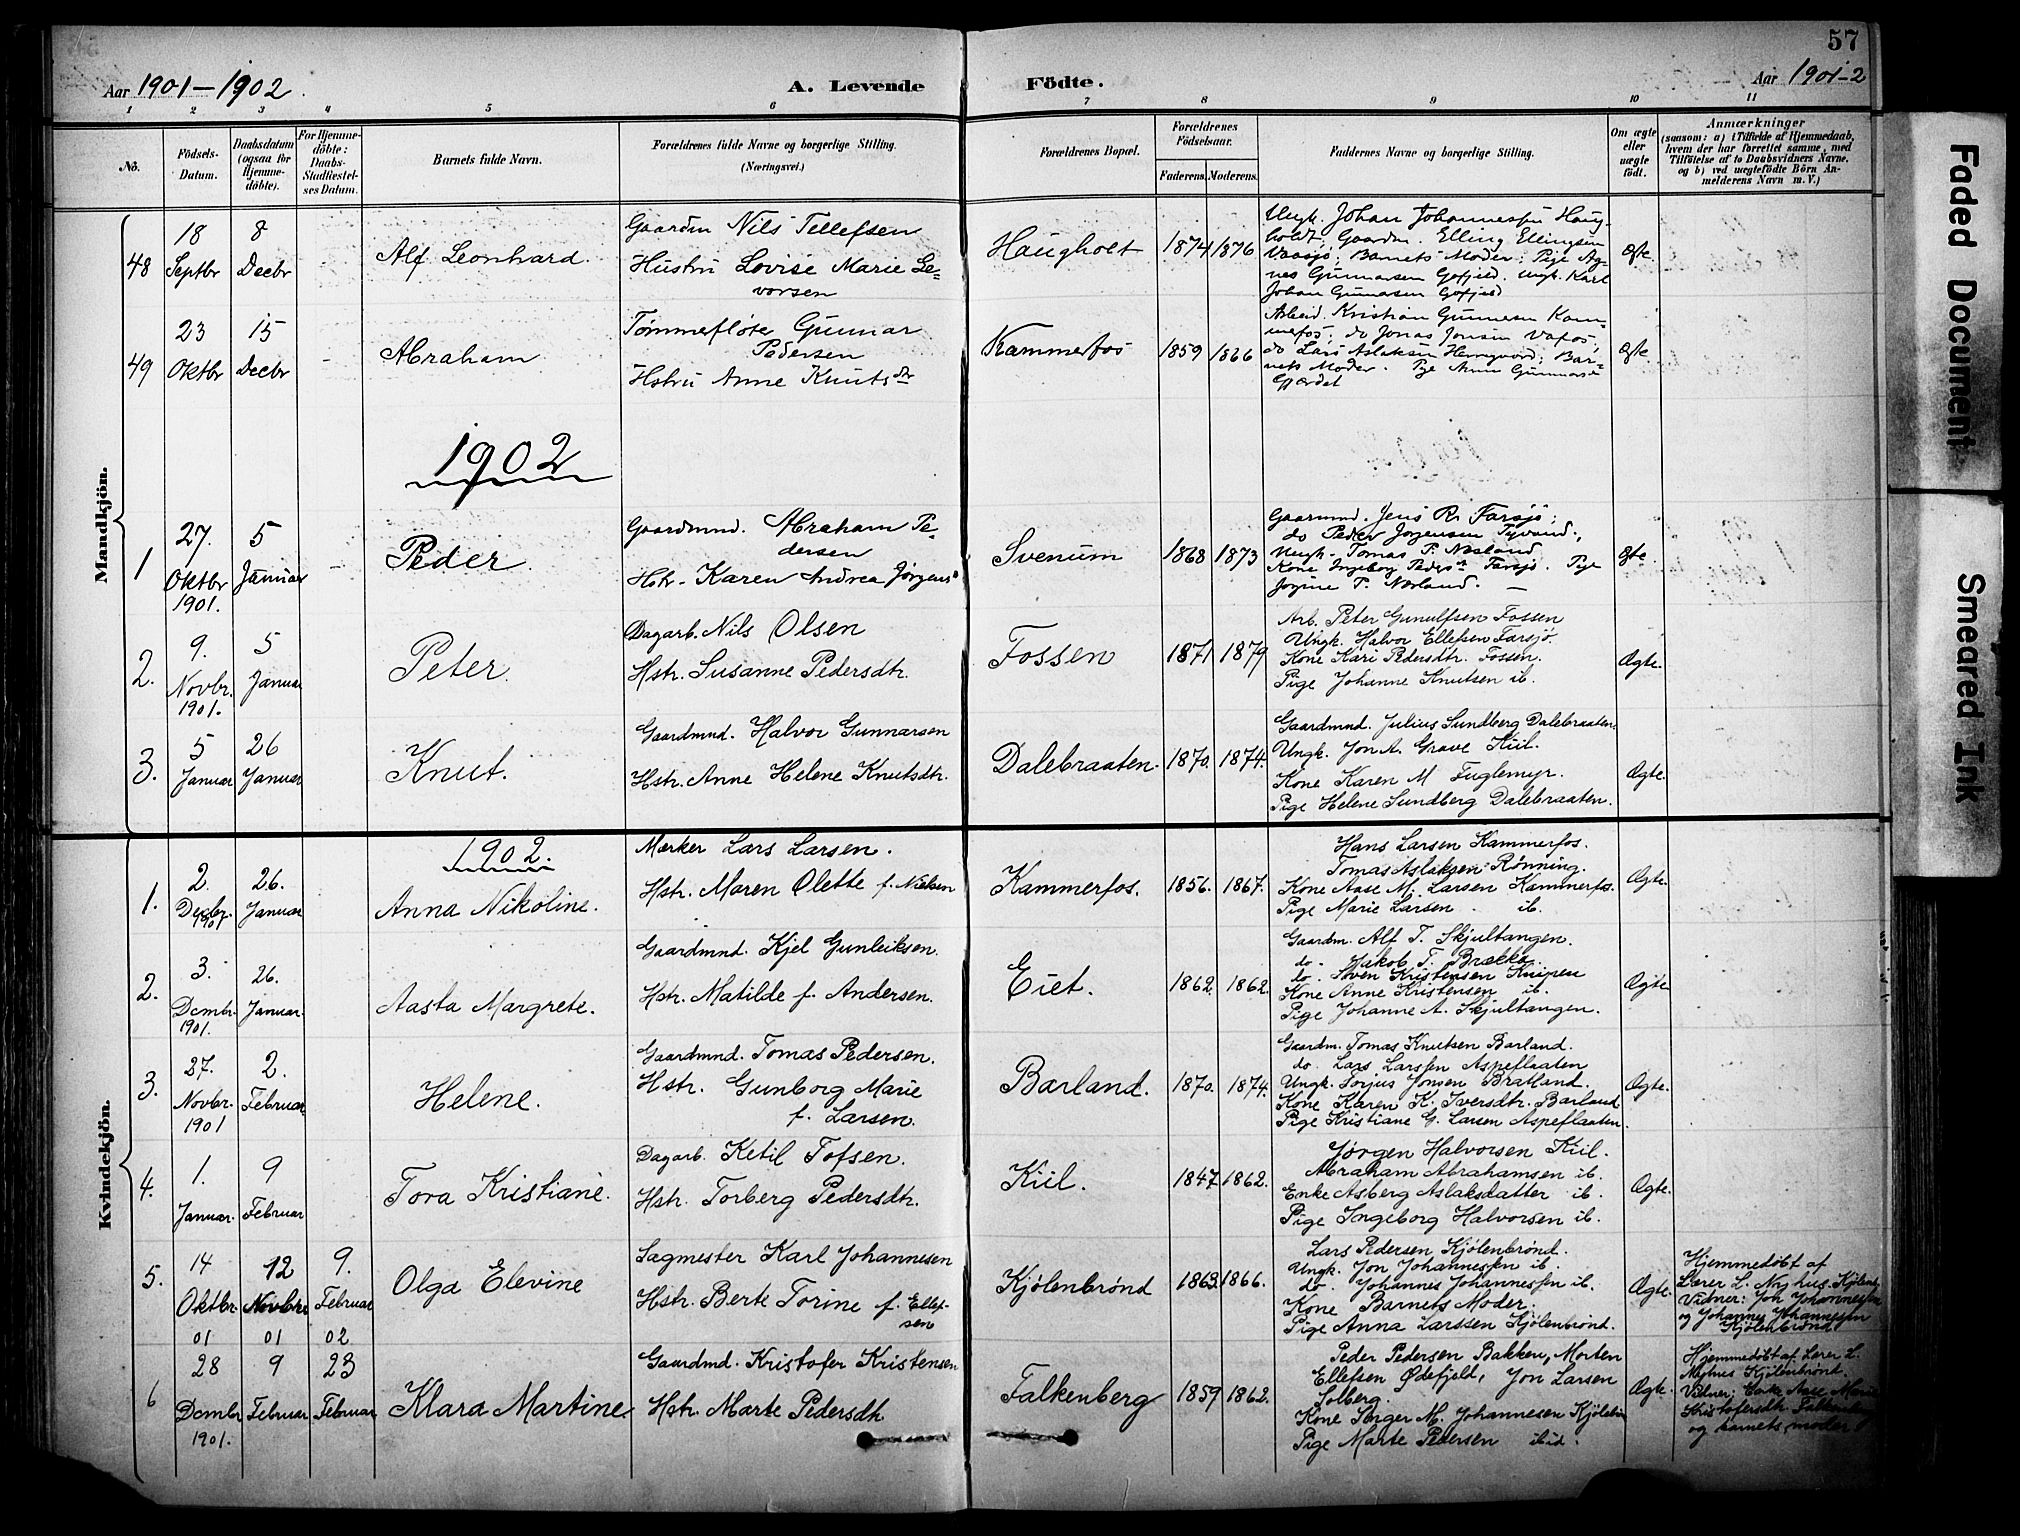 57
Aar 1901–1902
A. Levende Födte.
Aar 1901-2
1 2 3 4 5 6 7 8 9 10 11
No.
Födsels-Datum.
Daabsdatum (ogsaa for Hjemmedöbte).
For Hjemmedöbte: Daabs-Stadfæstelses Datum.
Barnets fulde Navn.
Forældrenes fulde Navne og borgerlige Stilling. (Næringsvei.)
Forældrenes Bopæl.
Forældrenes Födselsaar.
Faderens. Moderens.
Faddernes Navne og borgerlige Stilling.
Om ægte eller uægte födt.
Anmærkninger
(saasom: a) i Tilfælde af Hjemmedaab, hvem der har forrettet samme, med Tilföielse af to Daabsvidners Navne. og b) ved uægtefödte Börn Anmelderens Navn m. V.)
Mandkjön.
48 18 Septbr 8 Decbr Alf Leonhard.
Gaardm Nils Tellefsen
Hustru Lovise Marie Levorsen
Haugholt 1874 1876
Ungk. Johan Johannessen Haugholdt; Gaardm. Elling Ellingsen
Vaasjø; Barnets Moder; Pige Agnes Gunnarsen Gofjeld. Ungk. Karl
Johan Gunnarsen Gofjeld
Ægte.
49 23 Oktbr 15 Decbr Abraham
Tømmefløte Gunnar Pedersen
Hstru Anne Knutsdr
Kammerfos 1859 1866
Arbeid. Kristian Gunnesen Kammefos; do Jonas Jonsen Vafos;
do Lars Aslaksen; Barnets Moder. Pge Anne
Ægte
1902
1 27. Oktbr 1901. 5 Januar Peder
Gaardmnd. Abraham Pedersen
Hstr. Karen Andrea Jørgens
Svenum 1868 1873
Gaarmnd. Jens R. Farsjø;
do Peder Jørgensen Tyvand;
Ungk. Tomas P. Næsland
Kone Ingeborg Peders Farsjø. Pige
Jogine P. Nærland.
Ægte.
2. 9. Novbr. 1901. 5 Januar Peter.
Dagarb. Nils Olsen
Hstr. Susanne Pedersdtr.
Fossen 1871 1879
Arb. Peter Gunulfsen Fossen
Ungk. Halvor Ellefsen Farsjø.
Kone Kari Pedersdtr. Fossen.
Pige Johanne Knutsen ib.
Ægte.
3. 5 Januar 26 Januar Knut.
Gaardmnd. Halvor Gunnarsen
Hstr. Anne Helene Knutsdtr.
Dalebraaten. 1870. 1874.
Gaardmnd. Julius Sundberg Dalebraaten.
Ungk. Jon A. Grave Kiil.
Kone Karen M Fuglemyr.
Pige Helene Sundberg Dalebraaten.
Ægte.
Kvindekjön.
1902.
1. 2. Decbr. 1901 26. Januar Anna Nikoline.
Mærker Lars Larsen.
Hstr. Maren Olette f. Nielsen
Kammerfos. 1856. 1867.
Hans Larsen Kammerfos.
Tomas Aslaksen Rønning.
Kone Aase M. Larsen Kammerfos.
Pige Marie Larsen ib.
Ægte.
2. 3. Dcmbr. 1901. 26. Januar. Aasta Margrete.
Gaardmnd. Kjel Gunleiksen.
Hstr. Matilde f. Andersen.
Eiet. 1862. 1862.
Gaardm. Alf T. Skjultangen.
do. Jakob T. Brække.
do. Søven Kristensen Knipen
Kone Anne Kristensen ib.
Pige Johanne A. Skjultangen.
Ægte
3. 27. Novbr. 1901 2. Februar. Helene.
Gaardmnd. Tomas Pedersen.
Hstr. Gunborg Marie
f. Larsen.
Barland. 1870. 1874.
Gaardm. Tomas Knutsen Barland.
do. Lars Larsen Aspeflaaten
Ungk. Torjus Jonsen Bratland.
Kone Karen K. Iversdtr. Barland
Pige Kristiane G. Larsen Aspeflaaten.
Ægte.
4. 1. Januar. 9 Februar Tora Kristiane.
Dagarb. Ketil Tofsen.
Hstr. Torberg Pedersdtr.
Kiil. 1847 1862.
Jørgen Halvorsen Kiil.
Abraham Abrahamsen ib.
Enke Asberg Aslaksdatter ib.
Pige Ingeborg Halvorsen ib.
Ægte.
5. 14 Oktbr. 01 12 Novbr 01 9. Februar 02 Olga Elevine
Sagmester Karl Johannesen
Hstr. Berte Torine f. Ellefsen
Kjølenbrønd 1863. 1866.
Lars Pedersen Kjølenbrønd.
Ungk. Jon Johannessen ib.
do. Johannes Johannessen ib.
Kone Barnets Moder.
Pige Anna Larssen Kjølenbrønd.
Ægte.
Hjemmedøbt af
Lærer L. Nyhus. Kjølenb.
Vidner: Jon Johannessen
og Johannes Johannessen
Kjølenbrønd
6 28 Dcmbr 1901. 9 Februar 23 Februar Klara Martine.
Gaardmd. Kristofer Kristensen
Hstr. Marte Pedersdtr
Falkenberg 1859 1862.
Peder Pedersen Bakken, Morten
Ellefsen Ødefjeld, Jon Larsen
Solberg.
Kone Sørger M. Johannesen Kjølebrø
Pige Marte Pedersen ibid.
Ægte.
Hjemmedøbt af Lærer L.
Nyhus Kjølenbrønd.
Vidner: Enke Aase Marie
Kristofersdtr.
og barnets moder
Faded Document
Smeared Ink